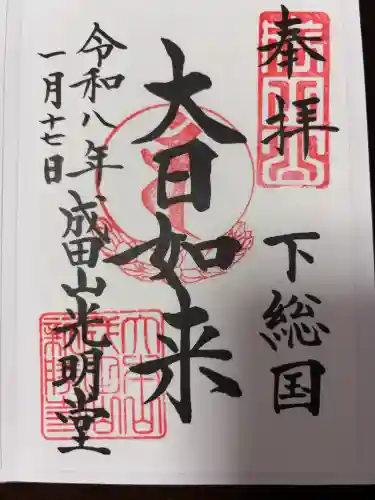 奉拝
下総国
大日如来
令和八年
一月十七日
成田山光明堂